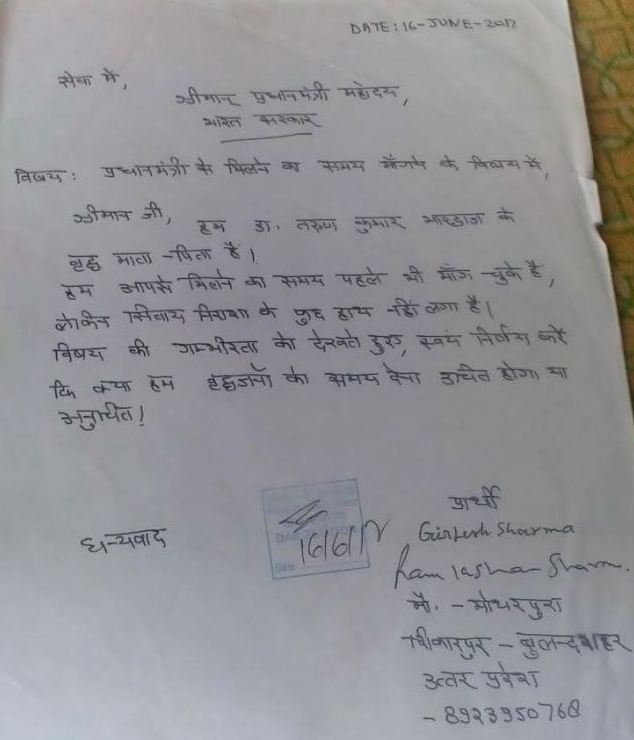 DATE: 16-JUNE-2017
सेवा में,
श्रीमान् प्रधानमंत्री महोदय,
भारत सरकार
विषय: प्रधानमंत्री के मिलने का समय माँगने के विषय में,
श्रीमान जी, हम डा. तरुण कुमार भारद्वाज के
वृद्ध माता-पिता है।
हम आपसे मिलने का समय पहले भी माँग चुके है,
लेकिन सिवाय निराशा के कुछ हाथ नहीं लगा है।
विषय की गम्भीरता को देखते हुए, स्वयं निर्णय करें
कि क्या हम वृद्धजनों को समय देना उचित होगा या
अनुचित!
धन्यवाद
16/6/17
Date
प्रार्थी
Girlesh Sharma
Sharma
मौ. - मोथरपुरा
शिकारपुर - बुलन्दशहर
उत्तर प्रदेश
- 8923950768